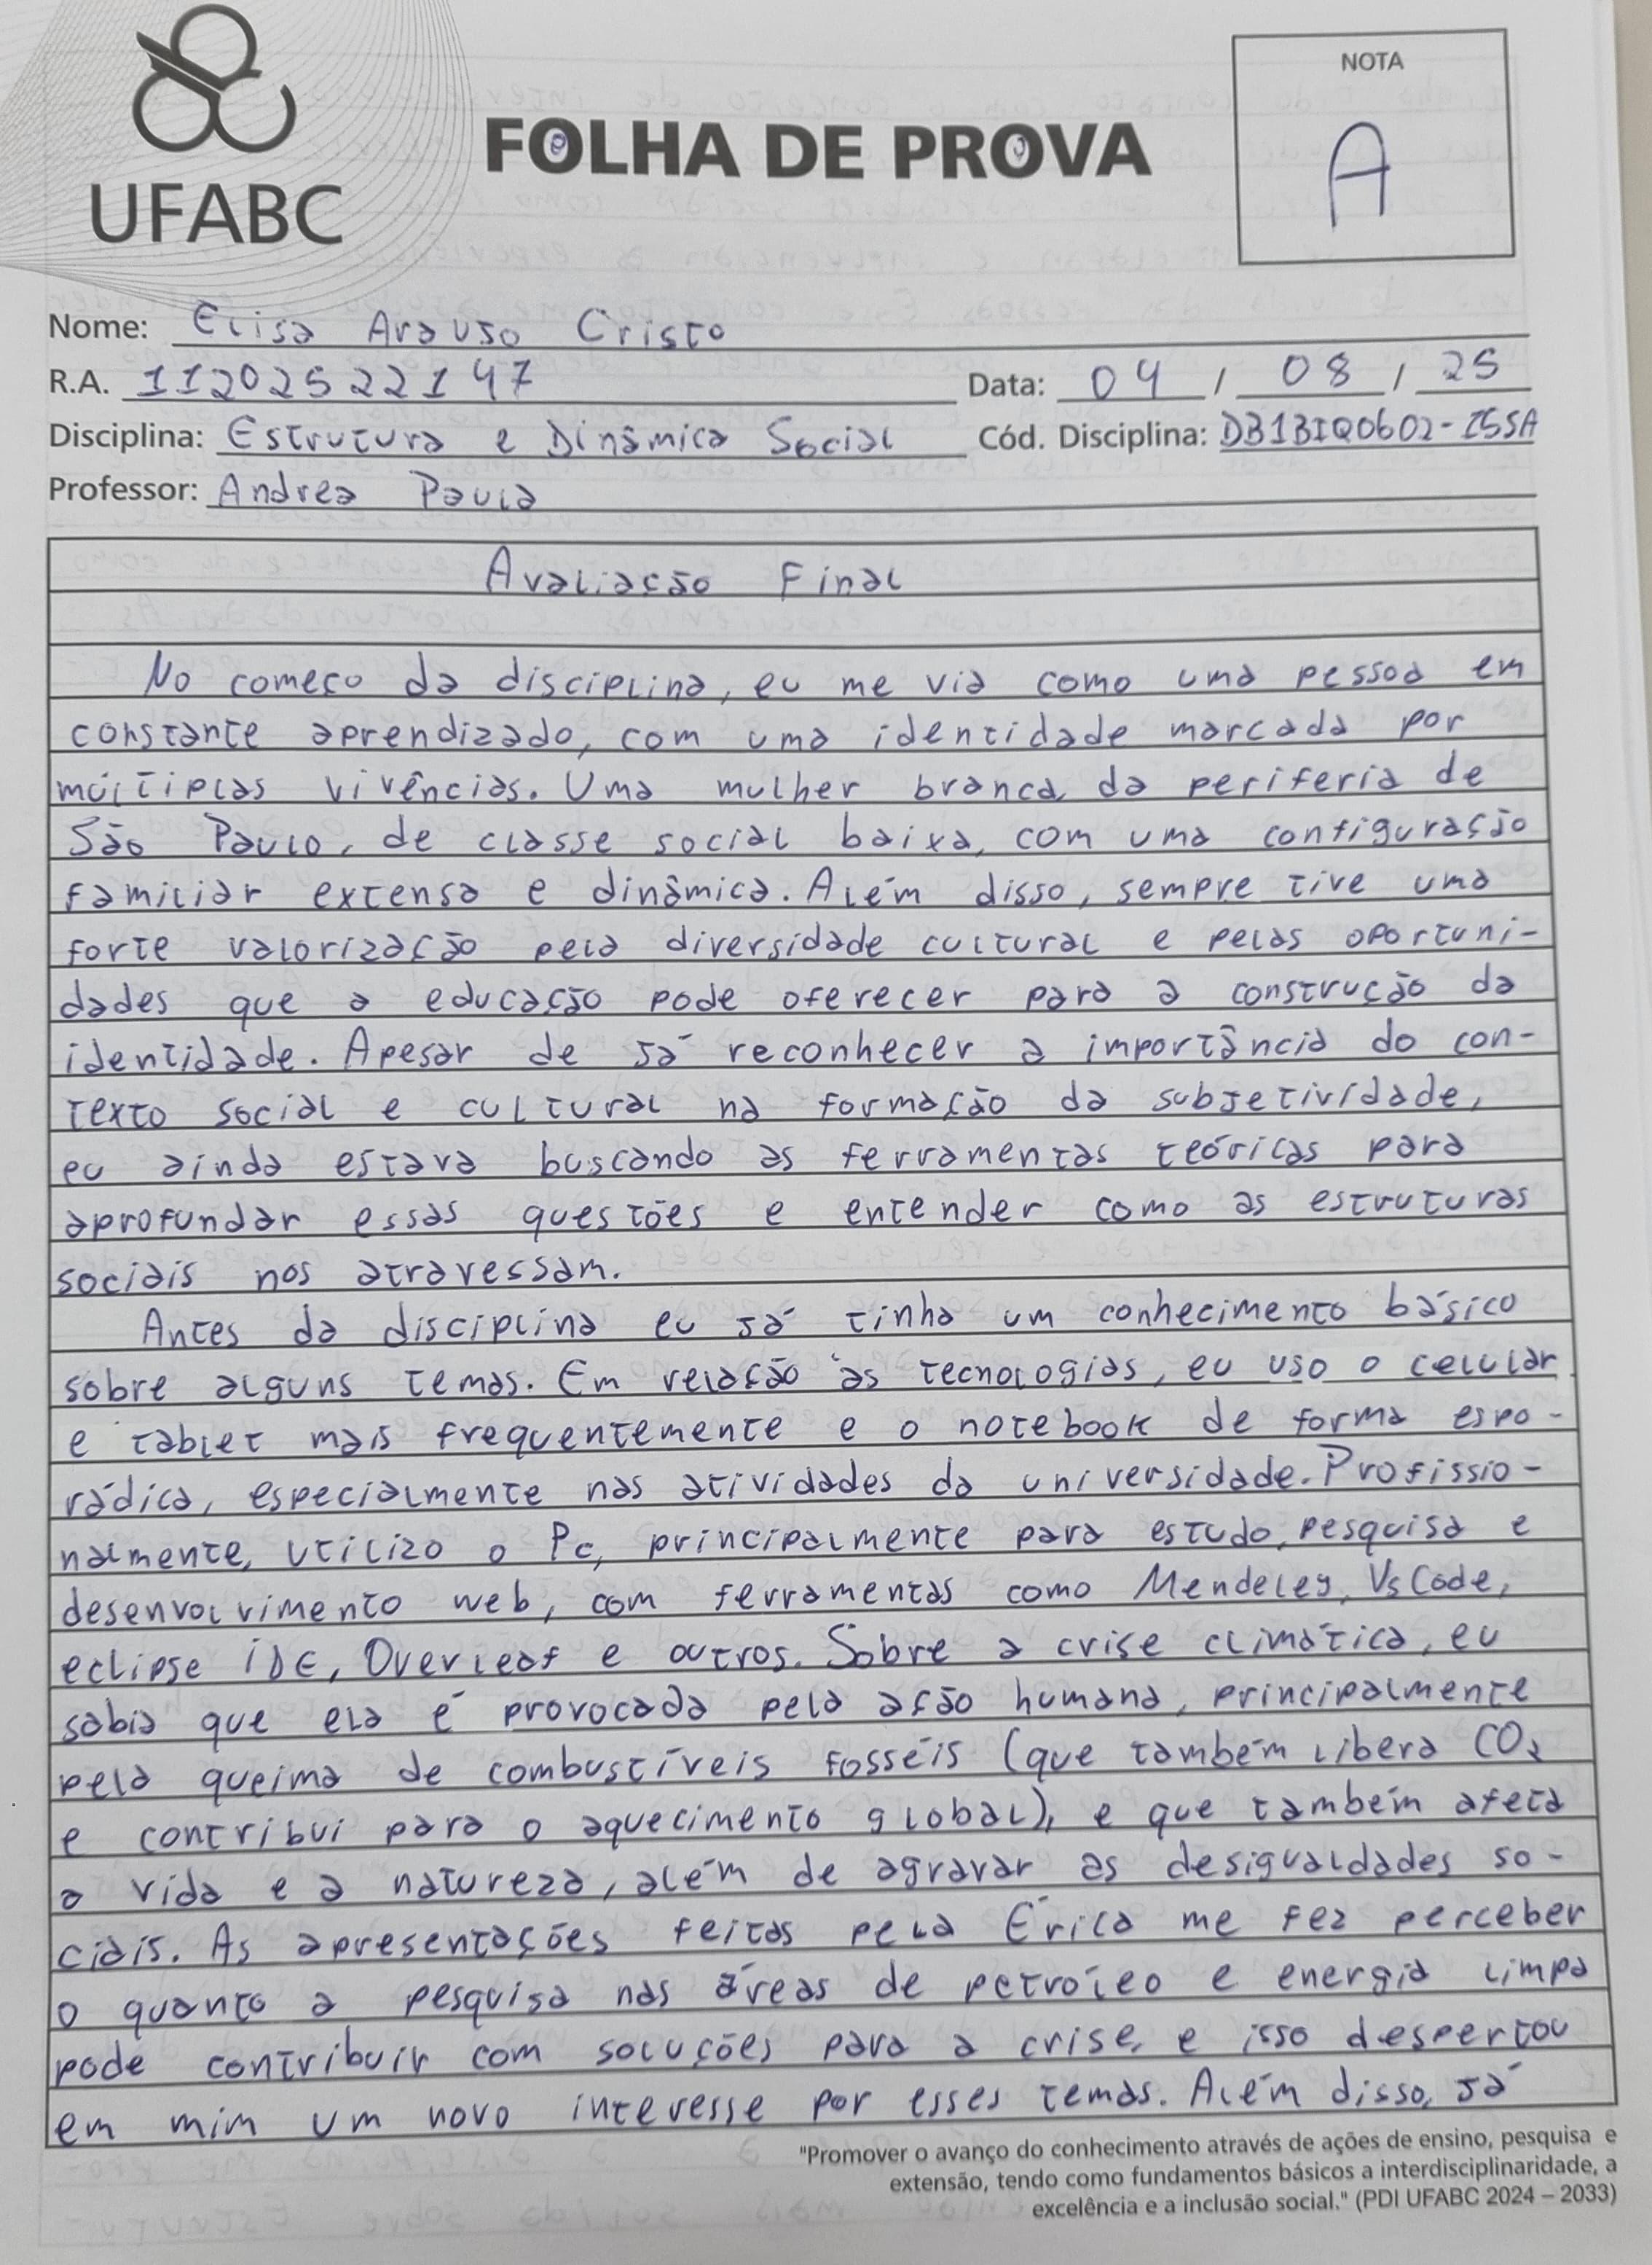 UFABC
FOLHA DE PROVA
NOTA
A
Nome: Elisa Araujo Cristo
R.A. 11202522147
Data: 04 / 08 / 25
Disciplina: Estrutura e Dinâmica Social
Cód. Disciplina: DB1BIQ0602-15SA
Professor: Andrea Paula
Avaliação Final
No começo da disciplina, eu me via como uma pessoa em
constante aprendizado, com uma identidade marcada por
múltiplas vivências. Uma mulher branca, da periferia de
São Paulo, de classe social baixa, com uma configuração
familiar extensa e dinâmica. Além disso, sempre tive uma
forte valorização pela diversidade cultural e pelas oportuni-
dades que a educação pode oferecer para a construção da
identidade. Apesar de já reconhecer a importância do con-
texto social e cultural na formação da subjetividade,
eu ainda estava buscando as ferramentas teóricas para
aprofundar essas questões e entender como as estruturas
sociais nos atravessam.
Antes da disciplina eu já tinha um conhecimento básico
sobre alguns temas. Em relação às tecnologias, eu uso o celular
e tablet mais frequentemente e o notebook de forma espo-
rádica, especialmente nas atividades da universidade. Profissio-
nalmente, utilizo o Pc, principalmente para estudo, pesquisa e
desenvolvimento web, com ferramentas como Mendeley, VsCode,
eclipse IDE, Overleaf e outros. Sobre a crise climática, eu
sabia que ela é provocada pela ação humana, principalmente
pela queima de combustíveis fosséis (que também libera CO2
e contribui para o aquecimento global), e que também afeta
a vida e a natureza, além de agravar as desigualdades so-
ciais. As apresentações feitas pela Érica me fez perceber
o quanto a pesquisa nas áreas de petróleo e energia limpa
pode contribuir com soluções para a crise, e isso despertou
em mim um novo interesse por esses temas. Além disso, já
"Promover o avanço do conhecimento através de ações de ensino, pesquisa e
extensão, tendo como fundamentos básicos a interdisciplinaridade, a
excelência e a inclusão social." (PDI UFABC 2024 – 2033)